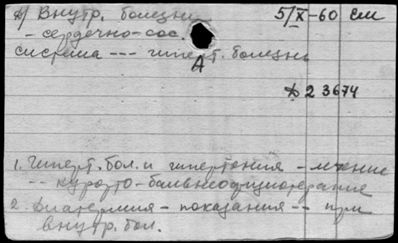 А) Внутр. болезни 5/X-60 см
- сердечно-сос.
система --- гиперт. болезнь
А
23674
1. Гиперт. бол. и гипертония - лечение
-- курорто-бальнеофизиотерапия
2. Диатермия - показания -- при
внутр. бол.